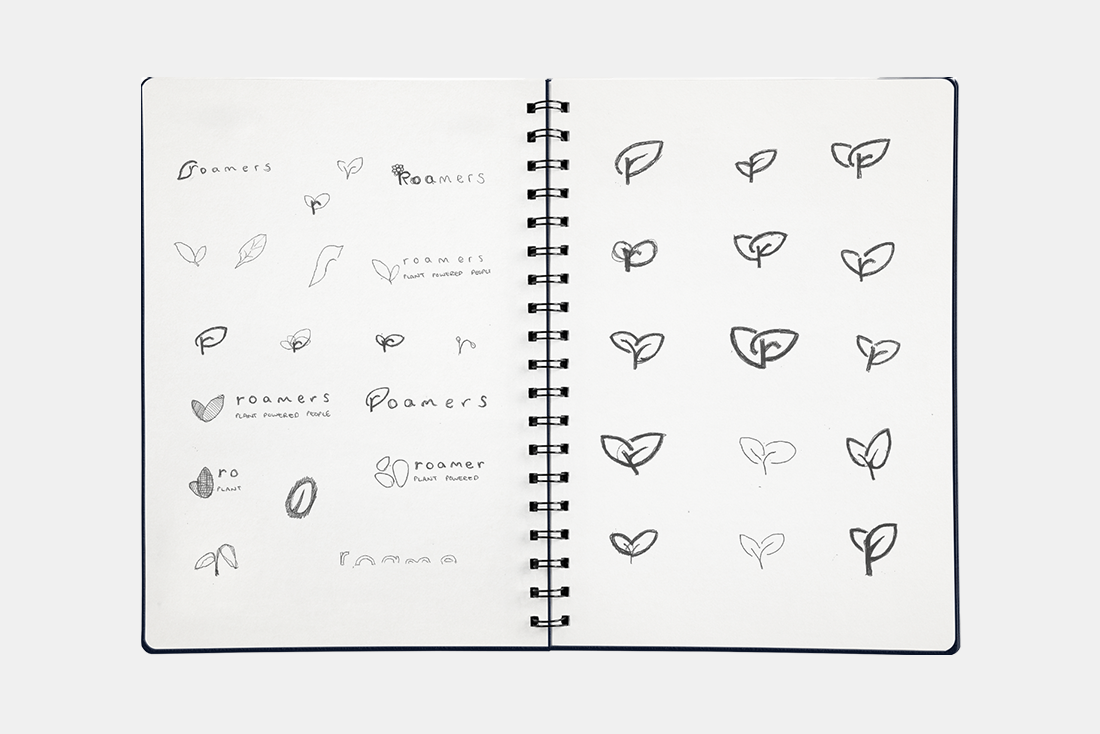 roamers
Roamers
r
roamers
PLANT POWERED PEOPLE
r
r
r
r
roamers
PLANT POWERED PEOPLE
Roamers
ro
PLANT
roamer
PLANT POWERED
roame
r
r
r
r
r
r
r
r
r